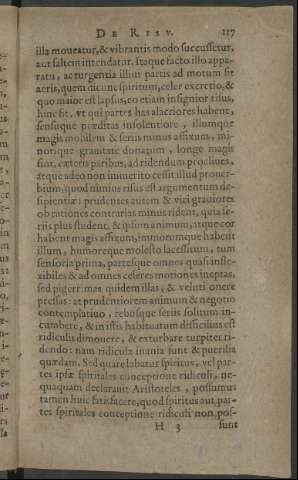 DE RISV. 117
illa moveatur, & vibrantis modo succussetur,
aut saltem intendatur. Itaque facto illo appa-
ratu, ac turgentia illius partis ad motum sit
aeris, quem dicunt spiritum, celer excretio, &
quo maior est lapsus, eo etiam insignior risus,
hinc fit, vt qui partes has alacriores habent,
sensuque præditas insolentiore, illumque
magis mobilem & serijs minus affixum, mi-
norique grauitate donatum, longe magis
sint, cæteris paribus, ad ridendum procliues,
atque adeo non immerito cessit illud prouer-
bium, quod nimius risus est argumentum de-
sipientiæ: prudentes autem & viri grauiores
ob rationes contrarias minus rident, quia se-
riis plus student, & ipsum animum, atque cor
habent magis affixum, immotumque habent
illum, humoreque molesto lacessitum, tum
sensoria prima, partesque omnes quasi infle-
xibiles & ad omnes celeres motiones ineptas,
sed pigerrimas quidem illas, & veluti onere
pressas: at prudentiorem animum & negotio
contemplatiuo, rebusque seriis solitum in-
cumbere, & in istis habituatum difficilius est
ridiculis dimouere, & exturbare turpiter ri-
dendo: nam ridicula inania sunt & puerilia
quædam. Sed quare labatur spiritus, vel par-
tes ipsæ spiritales conceptione ridiculi, ne-
quaquam declarauit Aristoteles, possumus
tamen huic satisfacere, quod spiritus aut par-
tes spiritales conceptione ridiculi non pos-
H 3 sunt